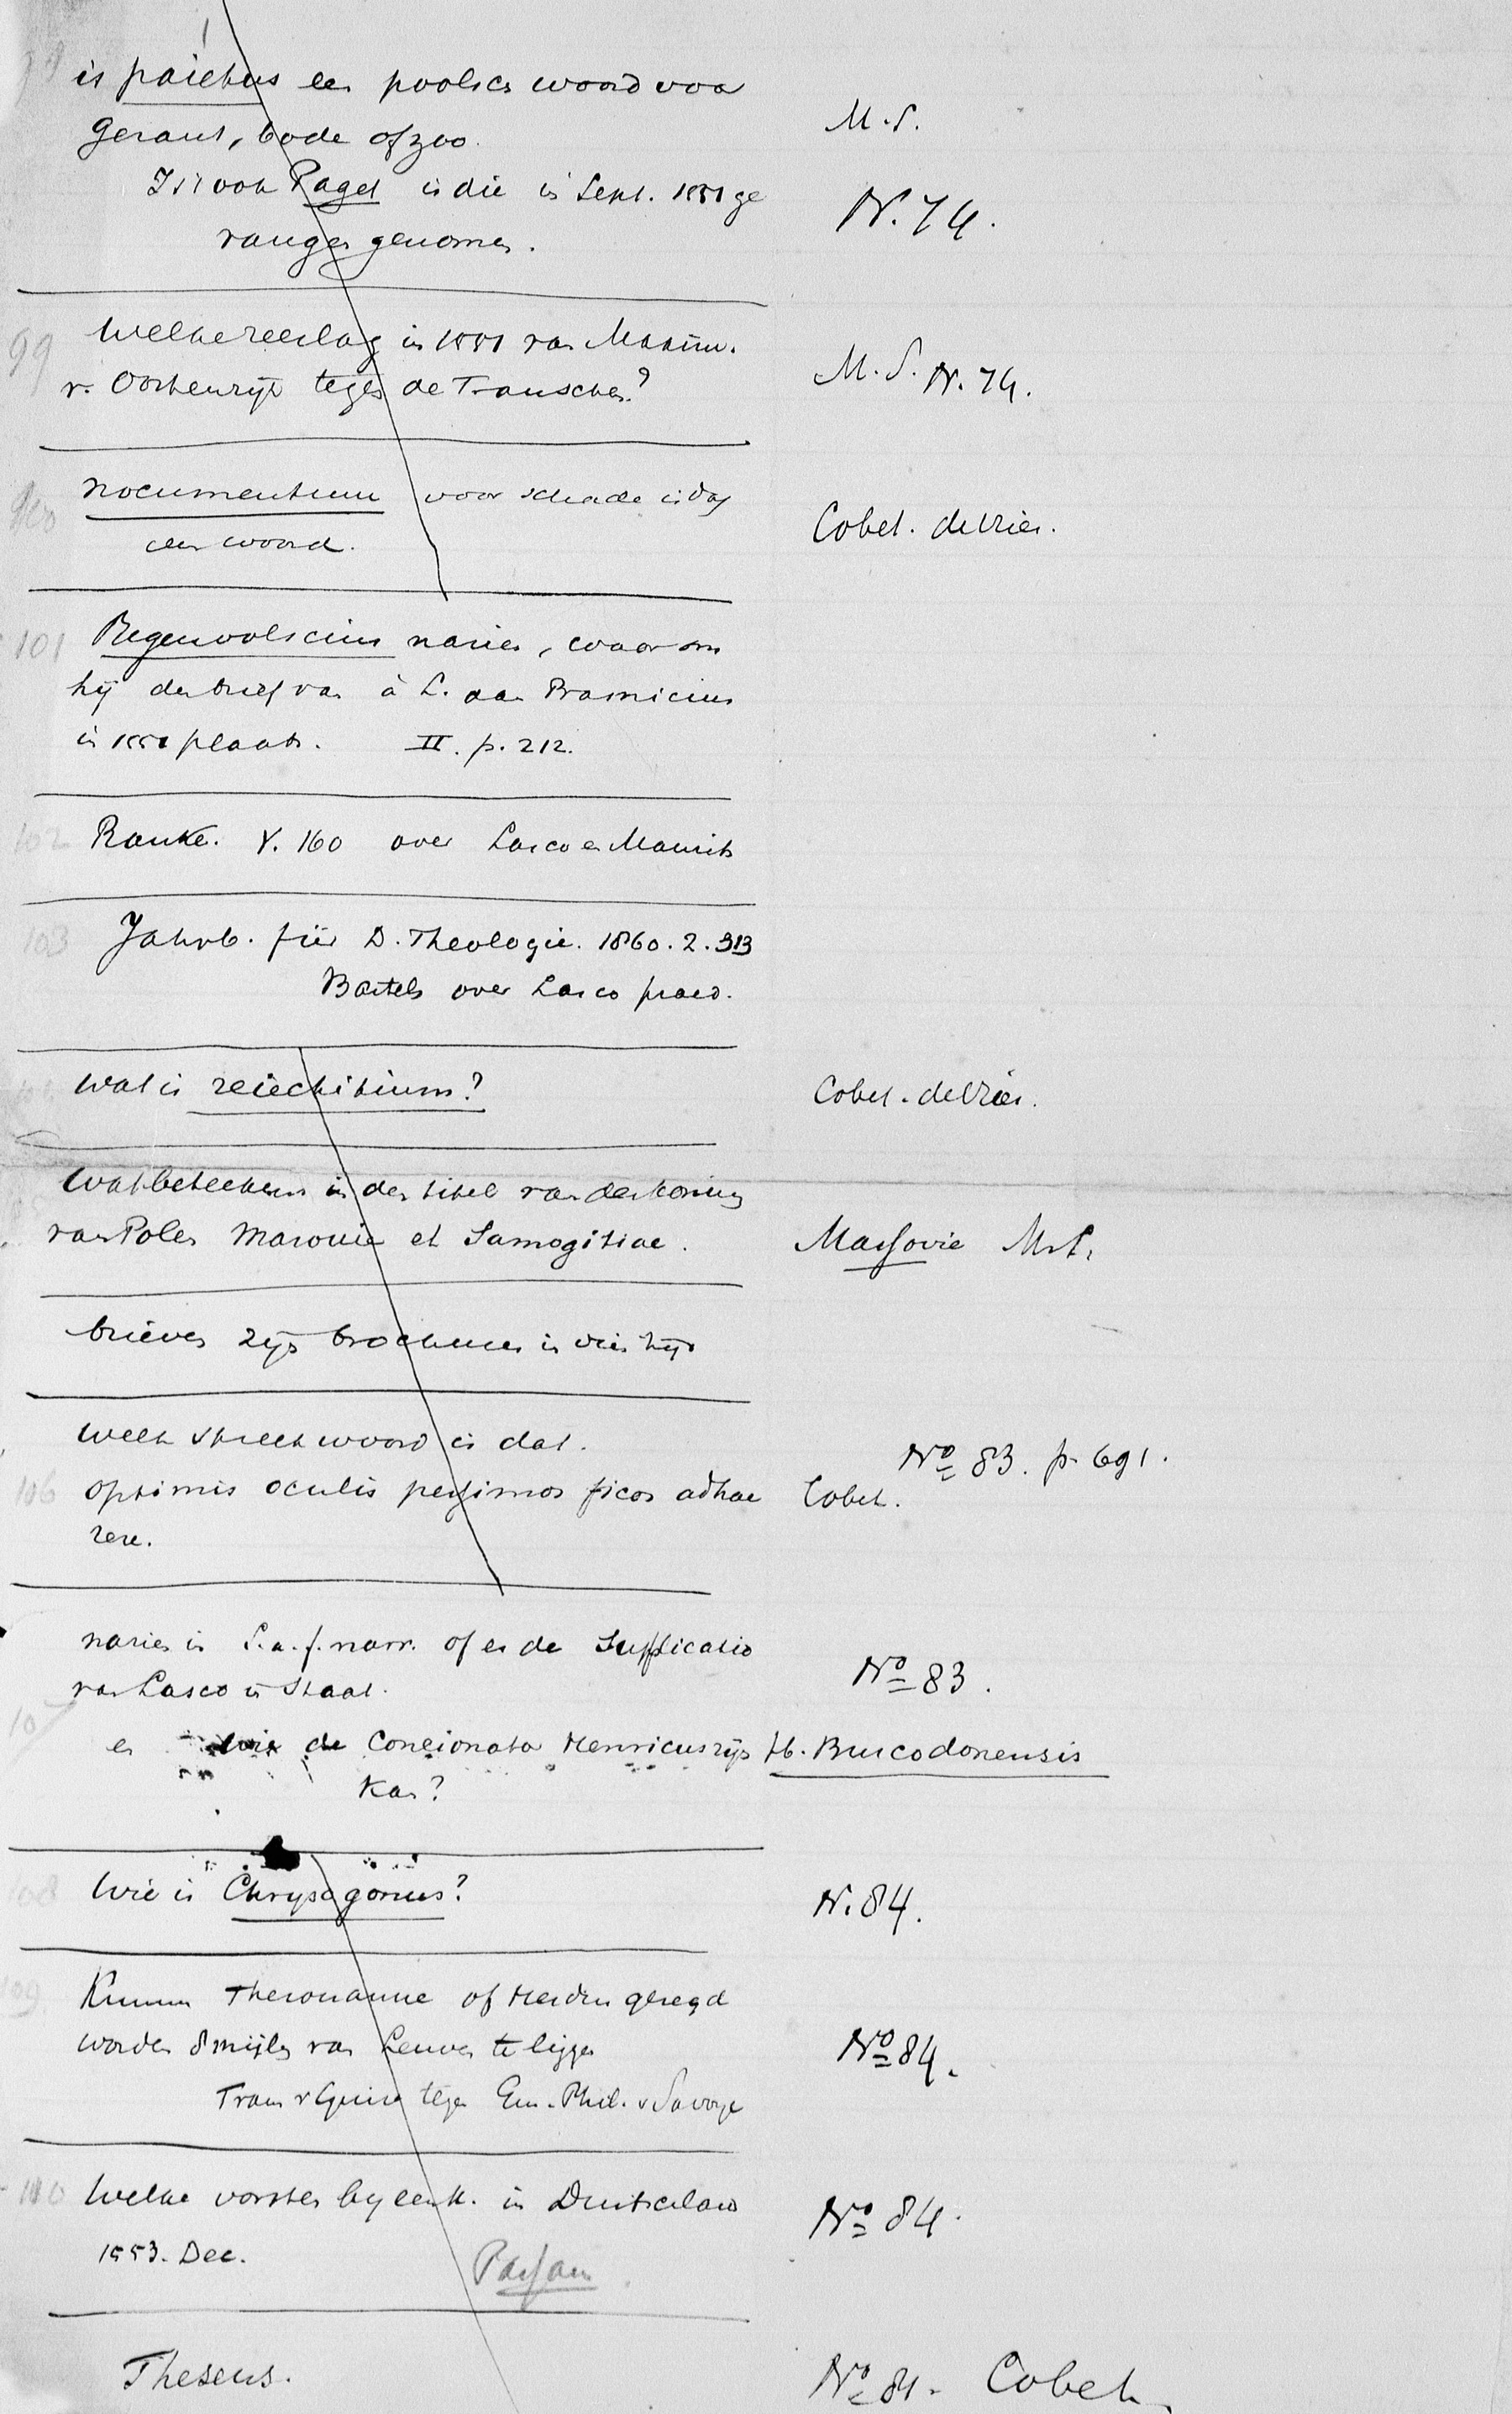 is paiebus een poolsch woord voor
gezant, bode of zoo.
M.S.
Is ook Paget in die in Sept. 1551 ge
N. 74.
vangen genomen.
99 Welke zeeslag in 1551 van Maxim.
v. Oostenrijk tegen de Franschen?
M.S. N. 74.
100 nocumentum voor schade is dat
een woord.
Cobet. de Vries.
101 Regenvolscius nazien, waarom
hij den brief van à L. aan Bramicius
in 1551 plaatst. II. p. 212.
102 Ranke. V. 160 over Lasco en Maurits
103 Jahrb. für D. Theologie. 1860. 2. 313
Bartels over Lasco praed.
Wat is reiechitium?
Cobet. de Vries.
Wat beteekent in den titel van den koning
van Polen Masovie et Samogitiae.
Massovie M.S.
brieven zijn brochures in dien tijd
Welk spreekwoord is dat.
No 83. p. 691.
106 optimis oculis pessimos ficos adhae
Cobet.
rere.
nazien in S. a. f. narr. of er de Supplicatio
van Lasco in staat.
No 83.
107
en wie de Concionator Henricus zijn
H. Buscodonensis
kan?
108 Wie is Chrysogonus?
N. 84.
109 Kunnen Therouanne of Hesdin gezegd
worden 8 mijlen van Leuven te liggen
No 84.
Frans v Guise tegen Em. Phil. v Savoye
110 Welke vorsten bijeenk. in Duitschland
1553. Dec.
No 84.
Passau
Theseus.
No 84. Cobet.